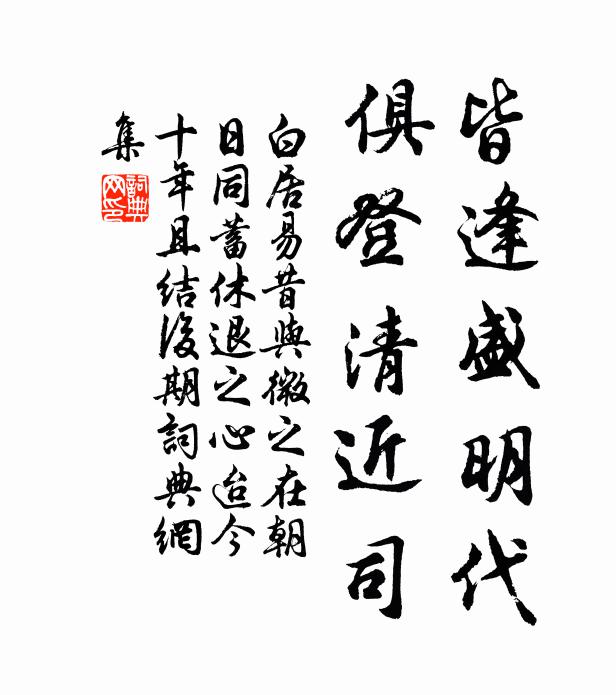 皆逢盛明代
俱登清近司
白居易昔與微之在朝
日同蓄休退之心迨今
十年且結後期詞典網
集
詞典
网印